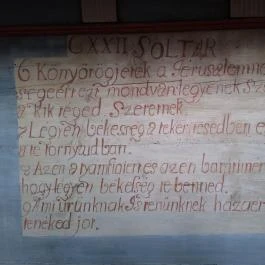 CXXII SOLTAR
6 Könyörögjetek a Jérusálemne
ségeért ezt mondván: legyenek
a kik téged Szeretnek
7 Legyen békesség a te keritésedben
a te tornyudban.
8 Azén atyamfiaiért és azén barátimért
hogy légyen békeség te benned.
9 A mi Urunknak Istenünknek házáért
tenéked jót.